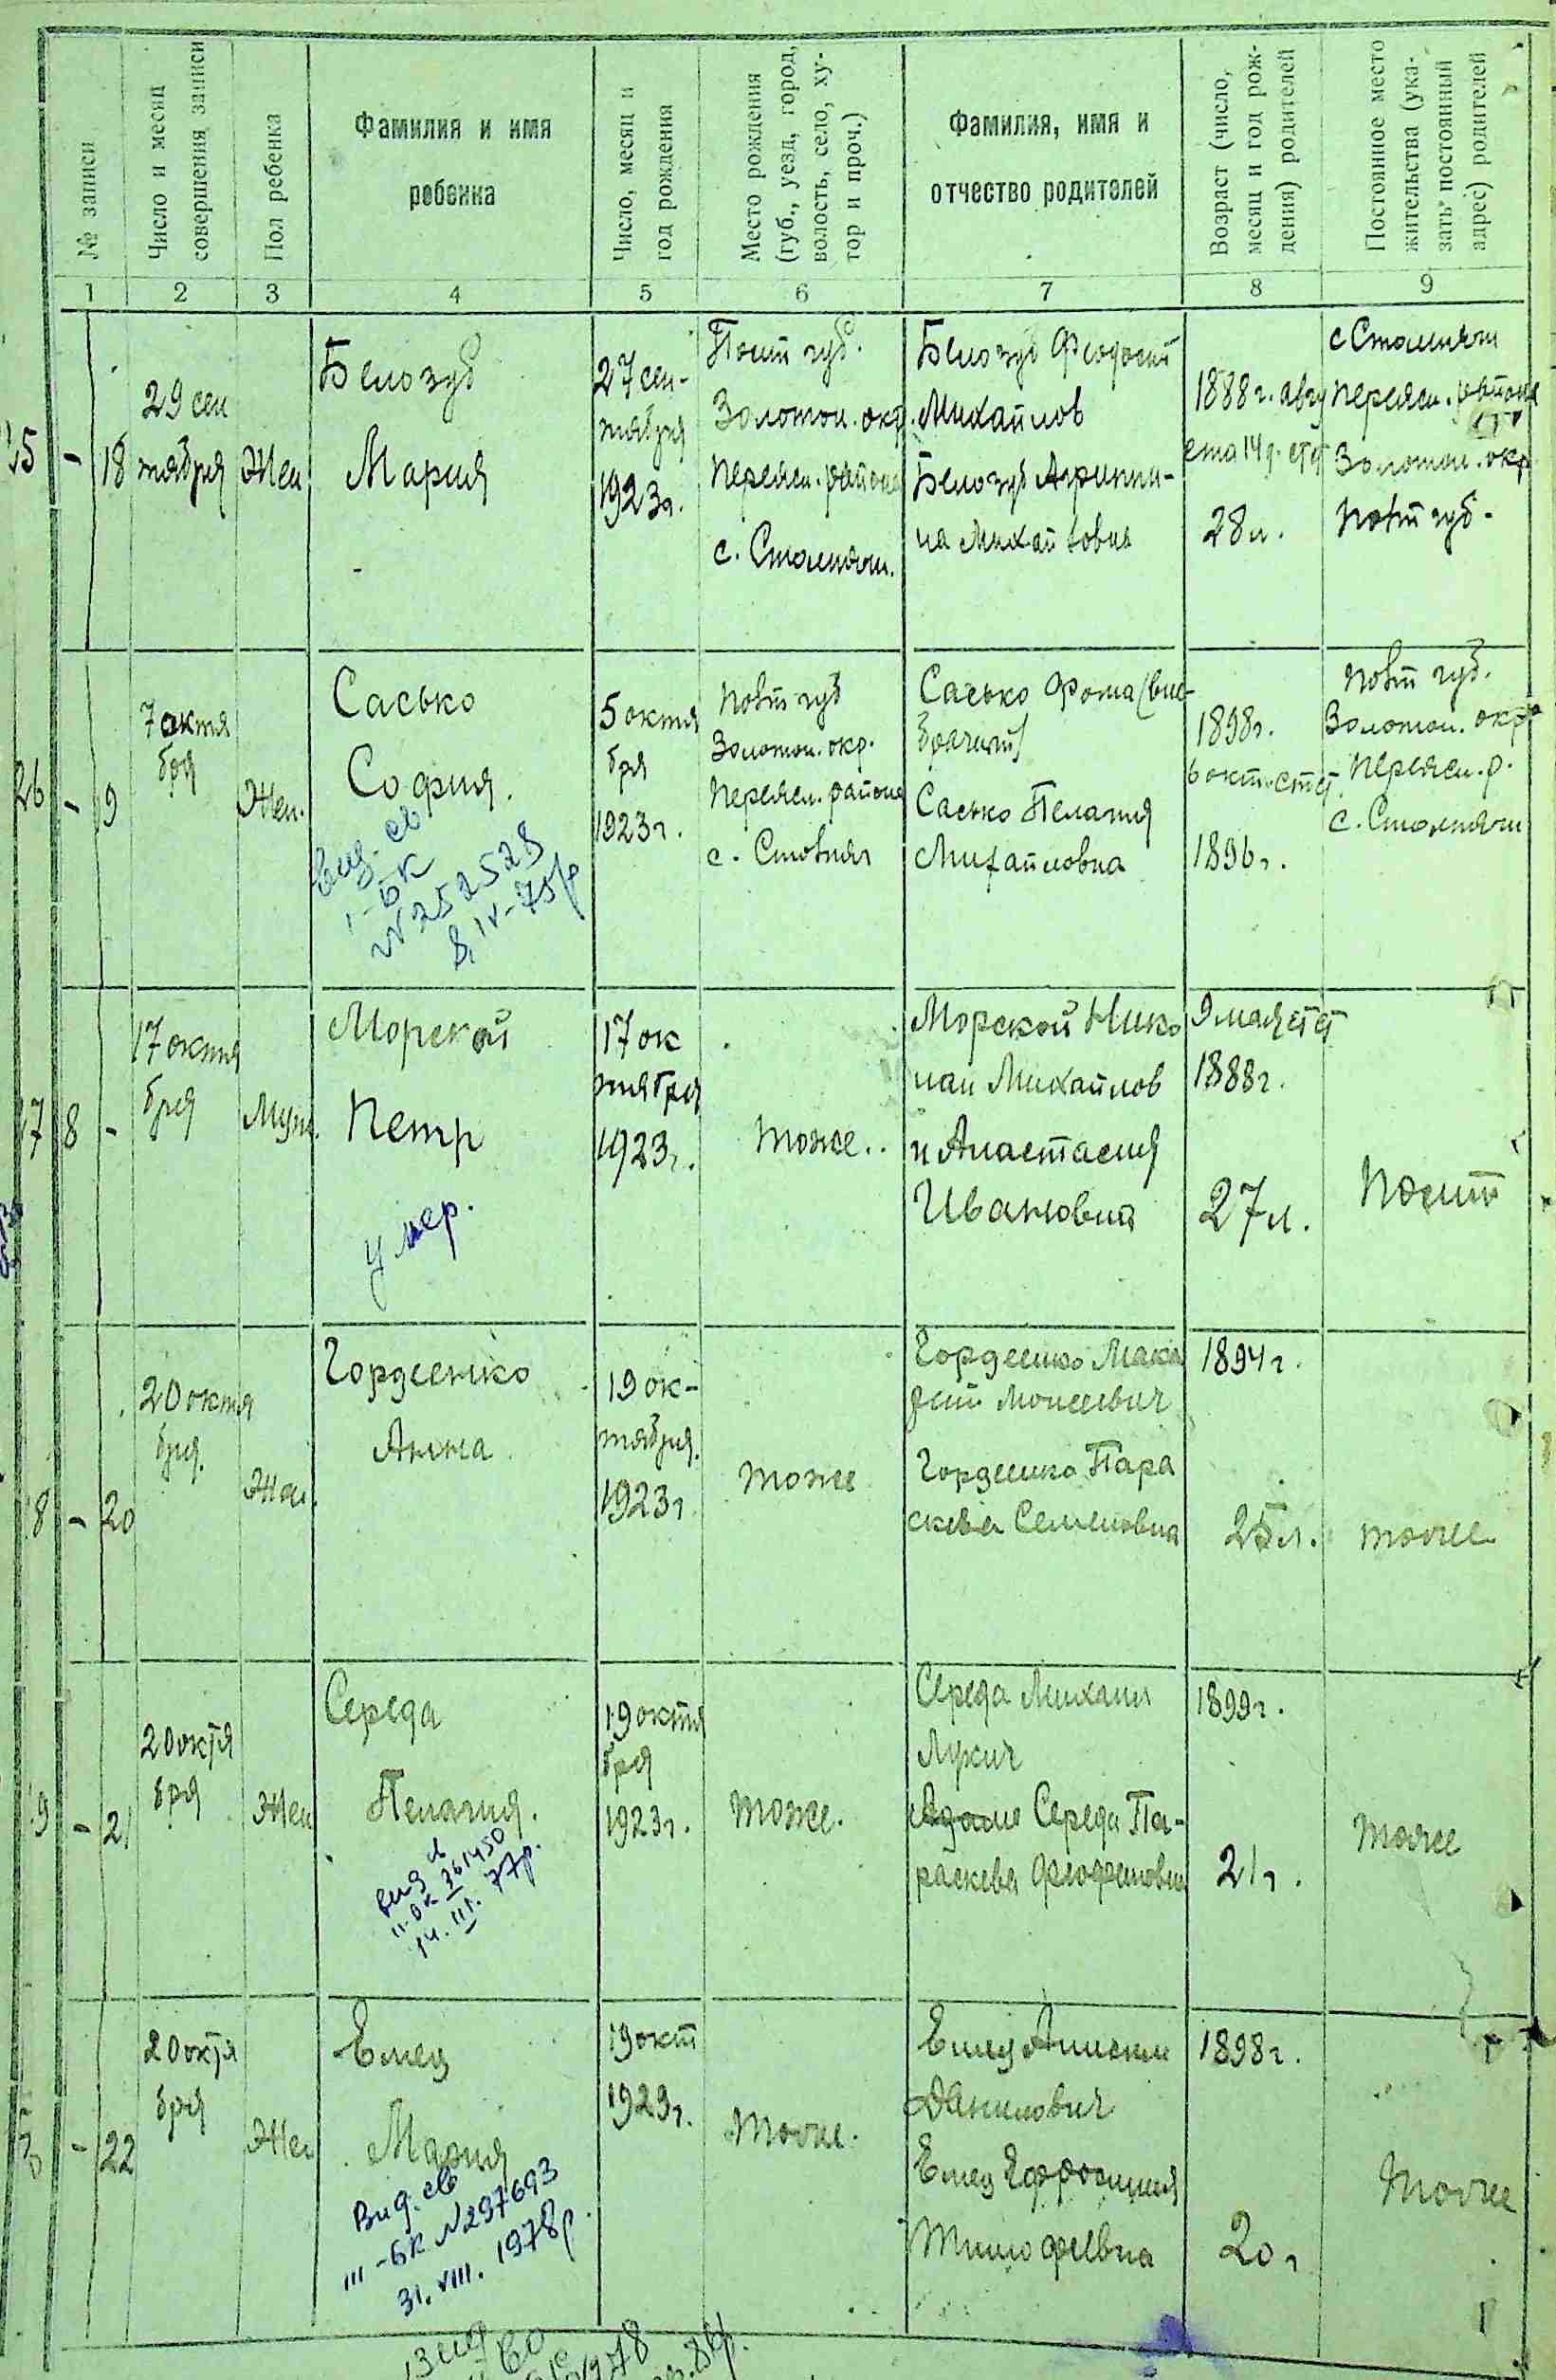 № записи
Число и месяц
совершения записи
Пол ребенка
Фамилия и имя
ребенка
Число, месяц и
год рождения
Место рождения
(губ., уезд, город,
волость, село, ху-
тор и проч.)
Фамилия, имя и
отчество родителей
Возраст (число,
месяц и год рож-
дения) родителей
Постоянное место
жительства (ука-
зать постоянный
адрес) родителей
1 2 3 4 5 6 7 8 9
- 18
29 сен
тября
Жен
Белозуб
Мария
27 сен-
тября
1923г.
Полт губ.
Золотон. окр.
Переясл. района
с. Столпяги.
Белозуб Феодосий
Михайлов
Белозуб Агрипи-
на Михайловна
1888 г. авгу
ста 14 д. ст ст
28 л.
с Столпяги
Переясл. района
Золотон. окр
Полт губ.
26 - 19
7 октя
бря
Жен.
Сасько
София.
вид. св
І-БК
№ 252528
8.IV-75р
5 октя
бря
1923 г.
Полт губ
Золотон. окр.
Переясл. района
с. Столпяги
Сасько Фома (вне-
брачный)
Сасько Пелагия
Михайловна
1898г.
6 окт. ст ст.
1896г.
Полт губ.
Золотон. окр
Переясл. р.
с. Столпяги
17 8 -
17 октя
бря
Муж.
Морской
Петр
умер.
17 ок
тября
1923г.
тоже..
Морской Нико
лай Михайлов
и Анастасия
Ивановна
9 мая ст ст
1888г.
27 л.
- 20
20 октя
бря.
Жен.
Гордиенко
Анна
19 ок-
тября.
1923г
тоже
Гордиенко Мака
рий Моисеевич
Гордиенко Пара
скева Семеновна
1894г.
25 л.
тоже
- 21
20 октя
бря
Жен
Середа
Пелагия.
вид св
II-БК 361450
14. III. 77р.
19 октя
бря
1923г.
тоже.
Середа Михаил
Лукич
Середа Па-
раскева
1899г.
21 г.
тоже
- 22
20 октя
бря
Жен
Емец
Мария
Вид. св
III-БК №297693
31. VIII. 1978р.
19 окт
1923г.
тоже.
Емец
Данилович
Емец Ефросиния
Тимофеевна
1898г.
20 г
тоже